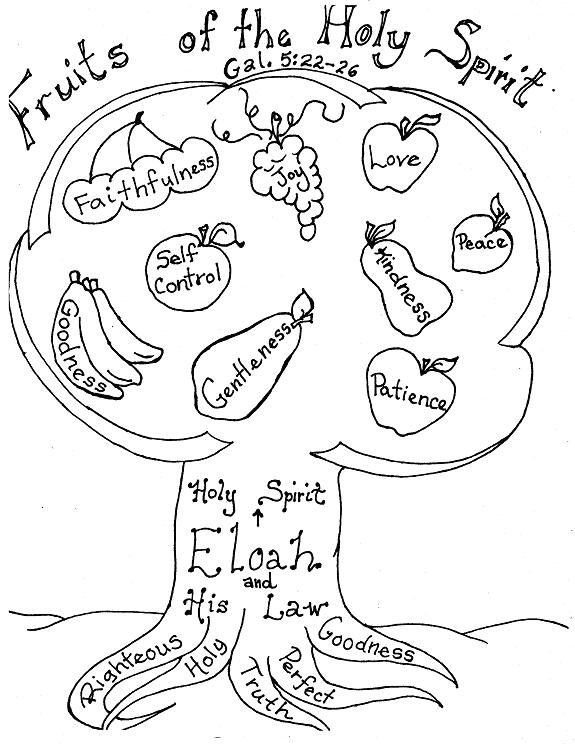 Fruits of the Holy Spirit
Gal. 5:22-26
Faithfulness
Joy
Love
Peace
Self
Control
Kindness
Goodness
Gentleness
Patience
Holy Spirit
↑
Eloah
and
His Law
Righteous
Holy
Truth
Perfect
Goodness